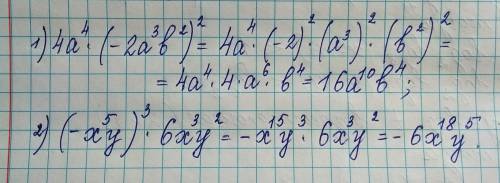 1) 4a⁴ · (-2a³b²)² = 4a⁴ · (-2)² · (a³)² · (b²)² =
= 4a⁴ · 4 · a⁶ · b⁴ = 16a¹⁰b⁴;
2) (-x⁵y)³ · 6x³y² = -x¹⁵y³ · 6x³y² = -6x¹⁸y⁵.